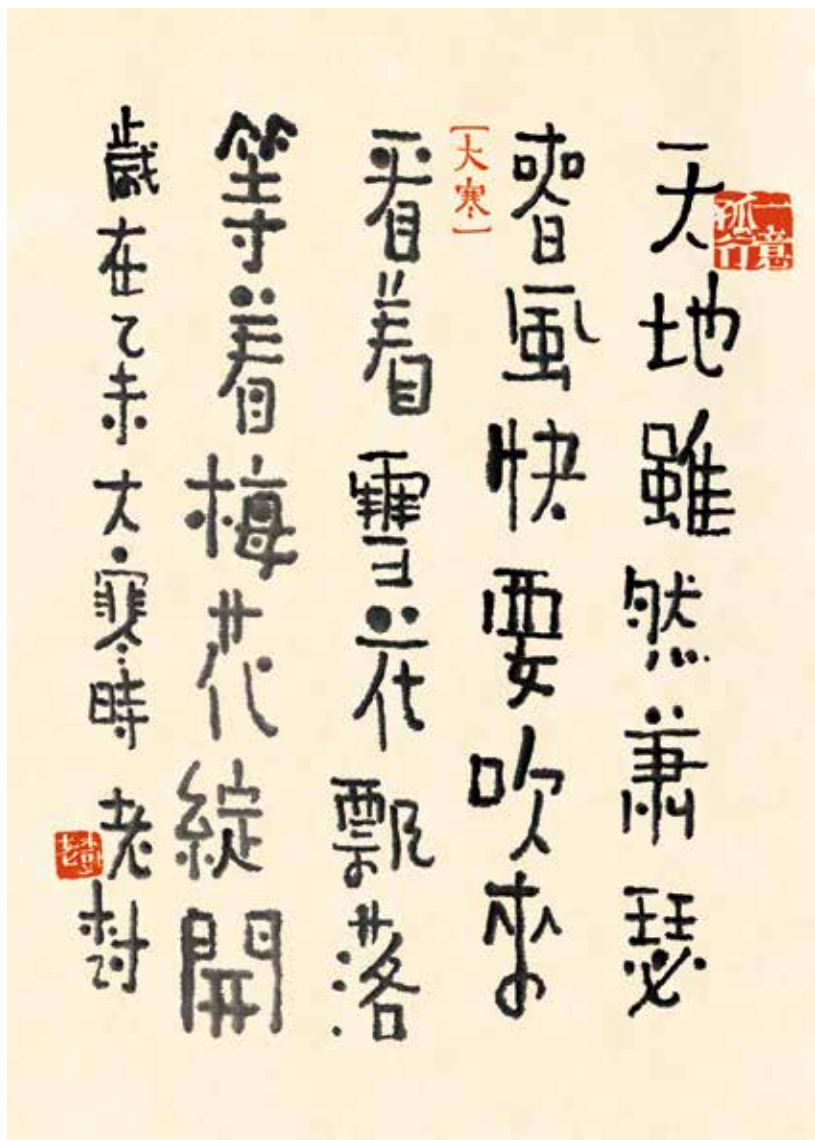 一意孤行
天地雖然蕭瑟
春風快要吹來
[大寒]
看着雪花飄落
等着梅花綻開
歲在乙未大寒時 老樹
老樹